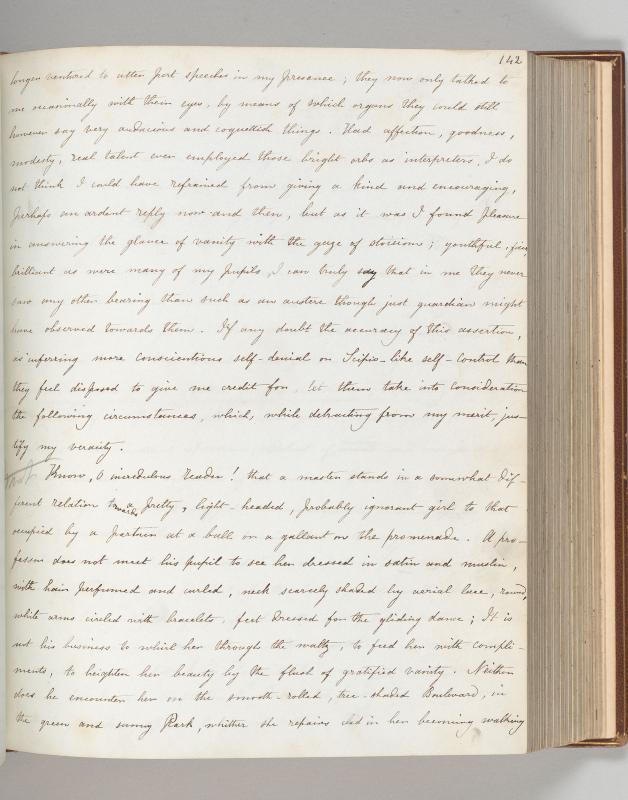 142
longer ventured to utter pert speeches in my presence; they now only talked to
me occasionally with their eyes, by means of which organs they could still
however say very audacious and coquettish things. Had affection, goodness,
modesty, real talent ever employed those bright orbs as interpreters, I do
not think I could have refrained from giving a kind and encouraging,
perhaps an ardent reply now and then, but as it was I found pleasure
in answering the glance of vanity with the gaze of stoicism; youthful, fair,
brilliant as were many of my pupils, I can truly say that in me they never
saw any other bearing than such as an austere though just guardian might
have observed towards them. If any doubt the accuracy of this assertion,
as inferring more conscientious self-denial or Scipio-like self-control than
they feel disposed to give me credit for, let them take into consideration
the following circumstances, which, while detracting from my merit, jus-
tify my veracity.
Know, O incredulous reader! that a master stands in a somewhat dif-
ferent relation towards a pretty, light-headed, probably ignorant girl to that
occupied by a partner at a ball or a gallant on the promenade. A pro-
fessor does not meet his pupil to see her dressed in satin and muslin,
with hair perfumed and curled, neck scarcely shaded by aerial lace, round,
white arms circled with bracelets, feet dressed for the gliding dance; It is
not his business to whirl her through the waltz, to feed her with compli-
ments, to heighten her beauty by the flush of gratified vanity. Neither
does he encounter her on the smooth-rolled, tree-shaded Boulevard, in
the green and sunny Park, whither she repairs clad in her becoming walking